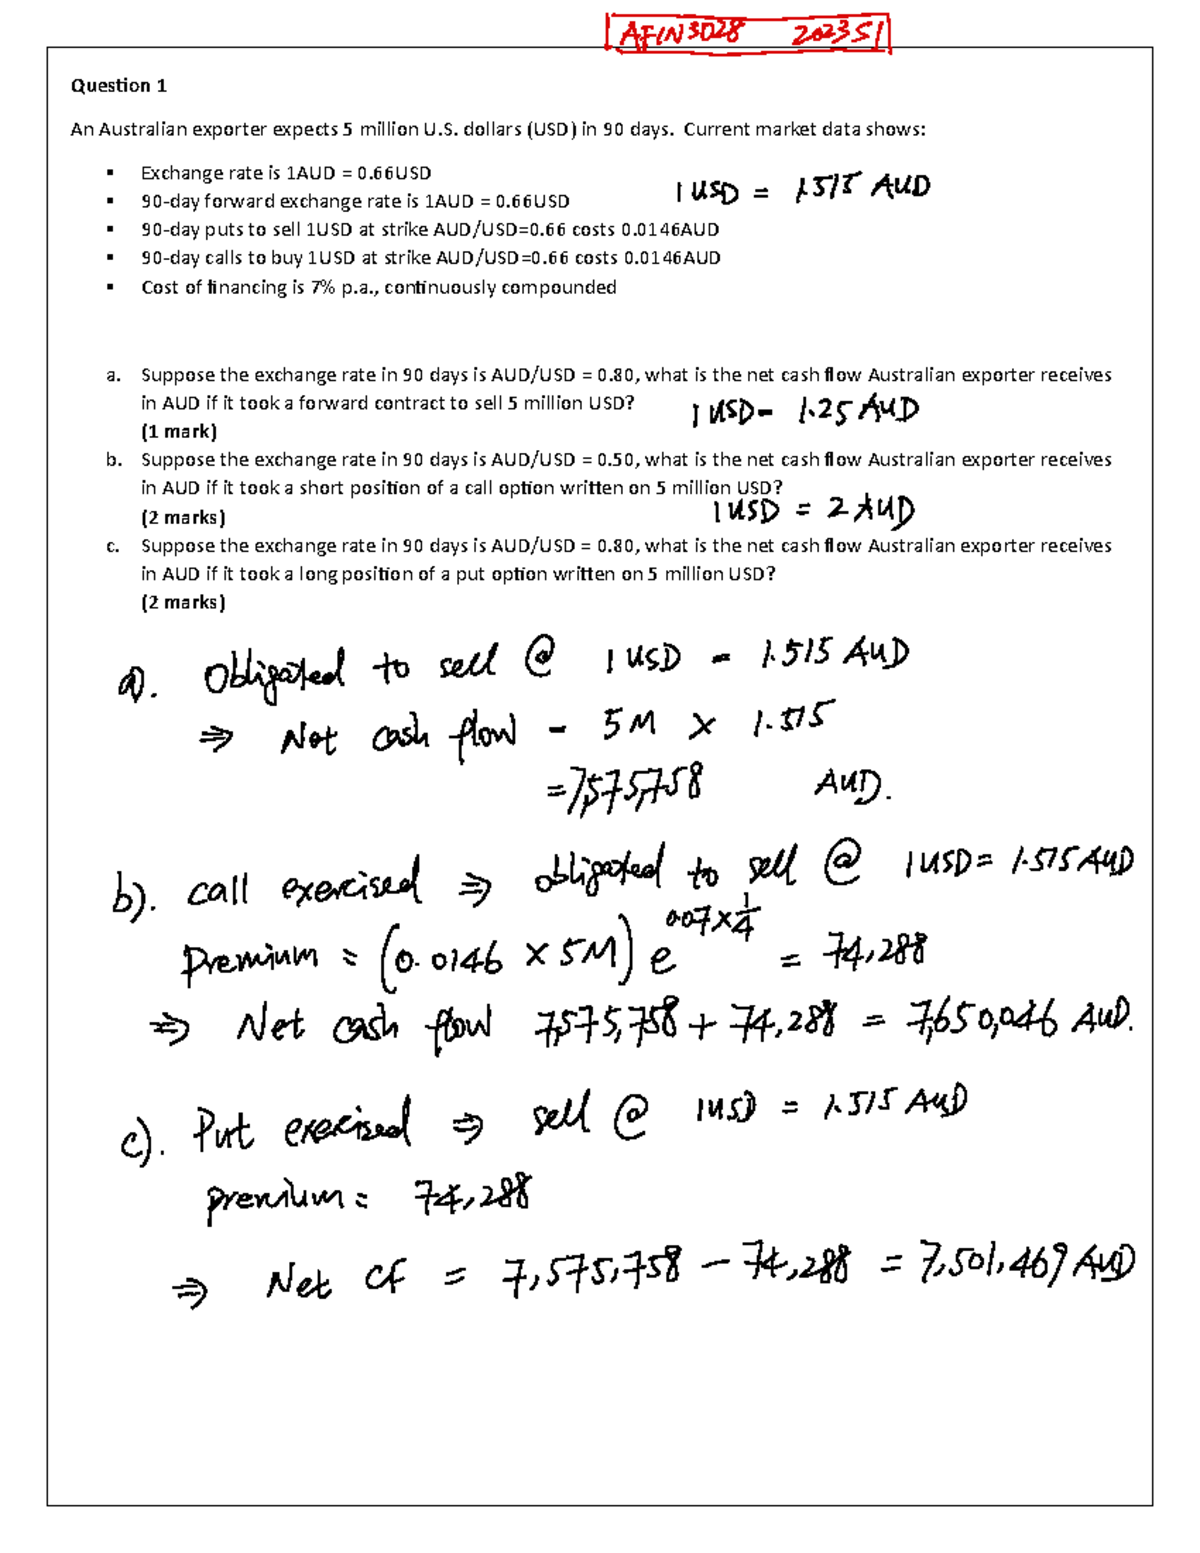 AFIN3028 2023S1
Question 1
An Australian exporter expects 5 million U.S. dollars (USD) in 90 days. Current market data shows:
▪ Exchange rate is 1AUD = 0.66USD
1 USD = 1.515 AUD
▪ 90-day forward exchange rate is 1AUD = 0.66USD
▪ 90-day puts to sell 1USD at strike AUD/USD=0.66 costs 0.0146AUD
▪ 90-day calls to buy 1USD at strike AUD/USD=0.66 costs 0.0146AUD
▪ Cost of financing is 7% p.a., continuously compounded
a. Suppose the exchange rate in 90 days is AUD/USD = 0.80, what is the net cash flow Australian exporter receives
in AUD if it took a forward contract to sell 5 million USD?
1 USD = 1.25 AUD
(1 mark)
b. Suppose the exchange rate in 90 days is AUD/USD = 0.50, what is the net cash flow Australian exporter receives
in AUD if it took a short position of a call option written on 5 million USD?
1 USD = 2 AUD
(2 marks)
c. Suppose the exchange rate in 90 days is AUD/USD = 0.80, what is the net cash flow Australian exporter receives
in AUD if it took a long position of a put option written on 5 million USD?
(2 marks)
a). Obligated to sell @ 1 USD = 1.515 AUD
⇒ Net cash flow = 5M × 1.515
= 7,575,758 AUD.
b). call exercised ⇒ obligated to sell @ 1 USD = 1.515 AUD
Premium = (0.0146 × 5M) e^0.07×1/4 = 74,288
⇒ Net cash flow 7,575,758 + 74,288 = 7,650,046 AUD.
c). Put exercised ⇒ sell @ 1 USD = 1.515 AUD
premium = 74,288
⇒ Net CF = 7,575,758 − 74,288 = 7,501,469 AUD